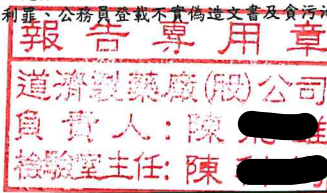 利罪、公務員登載不實偽造文書及貪污
報告專用章
道濟製藥廠(股)公司
負責人:陳
檢驗室主任:陳